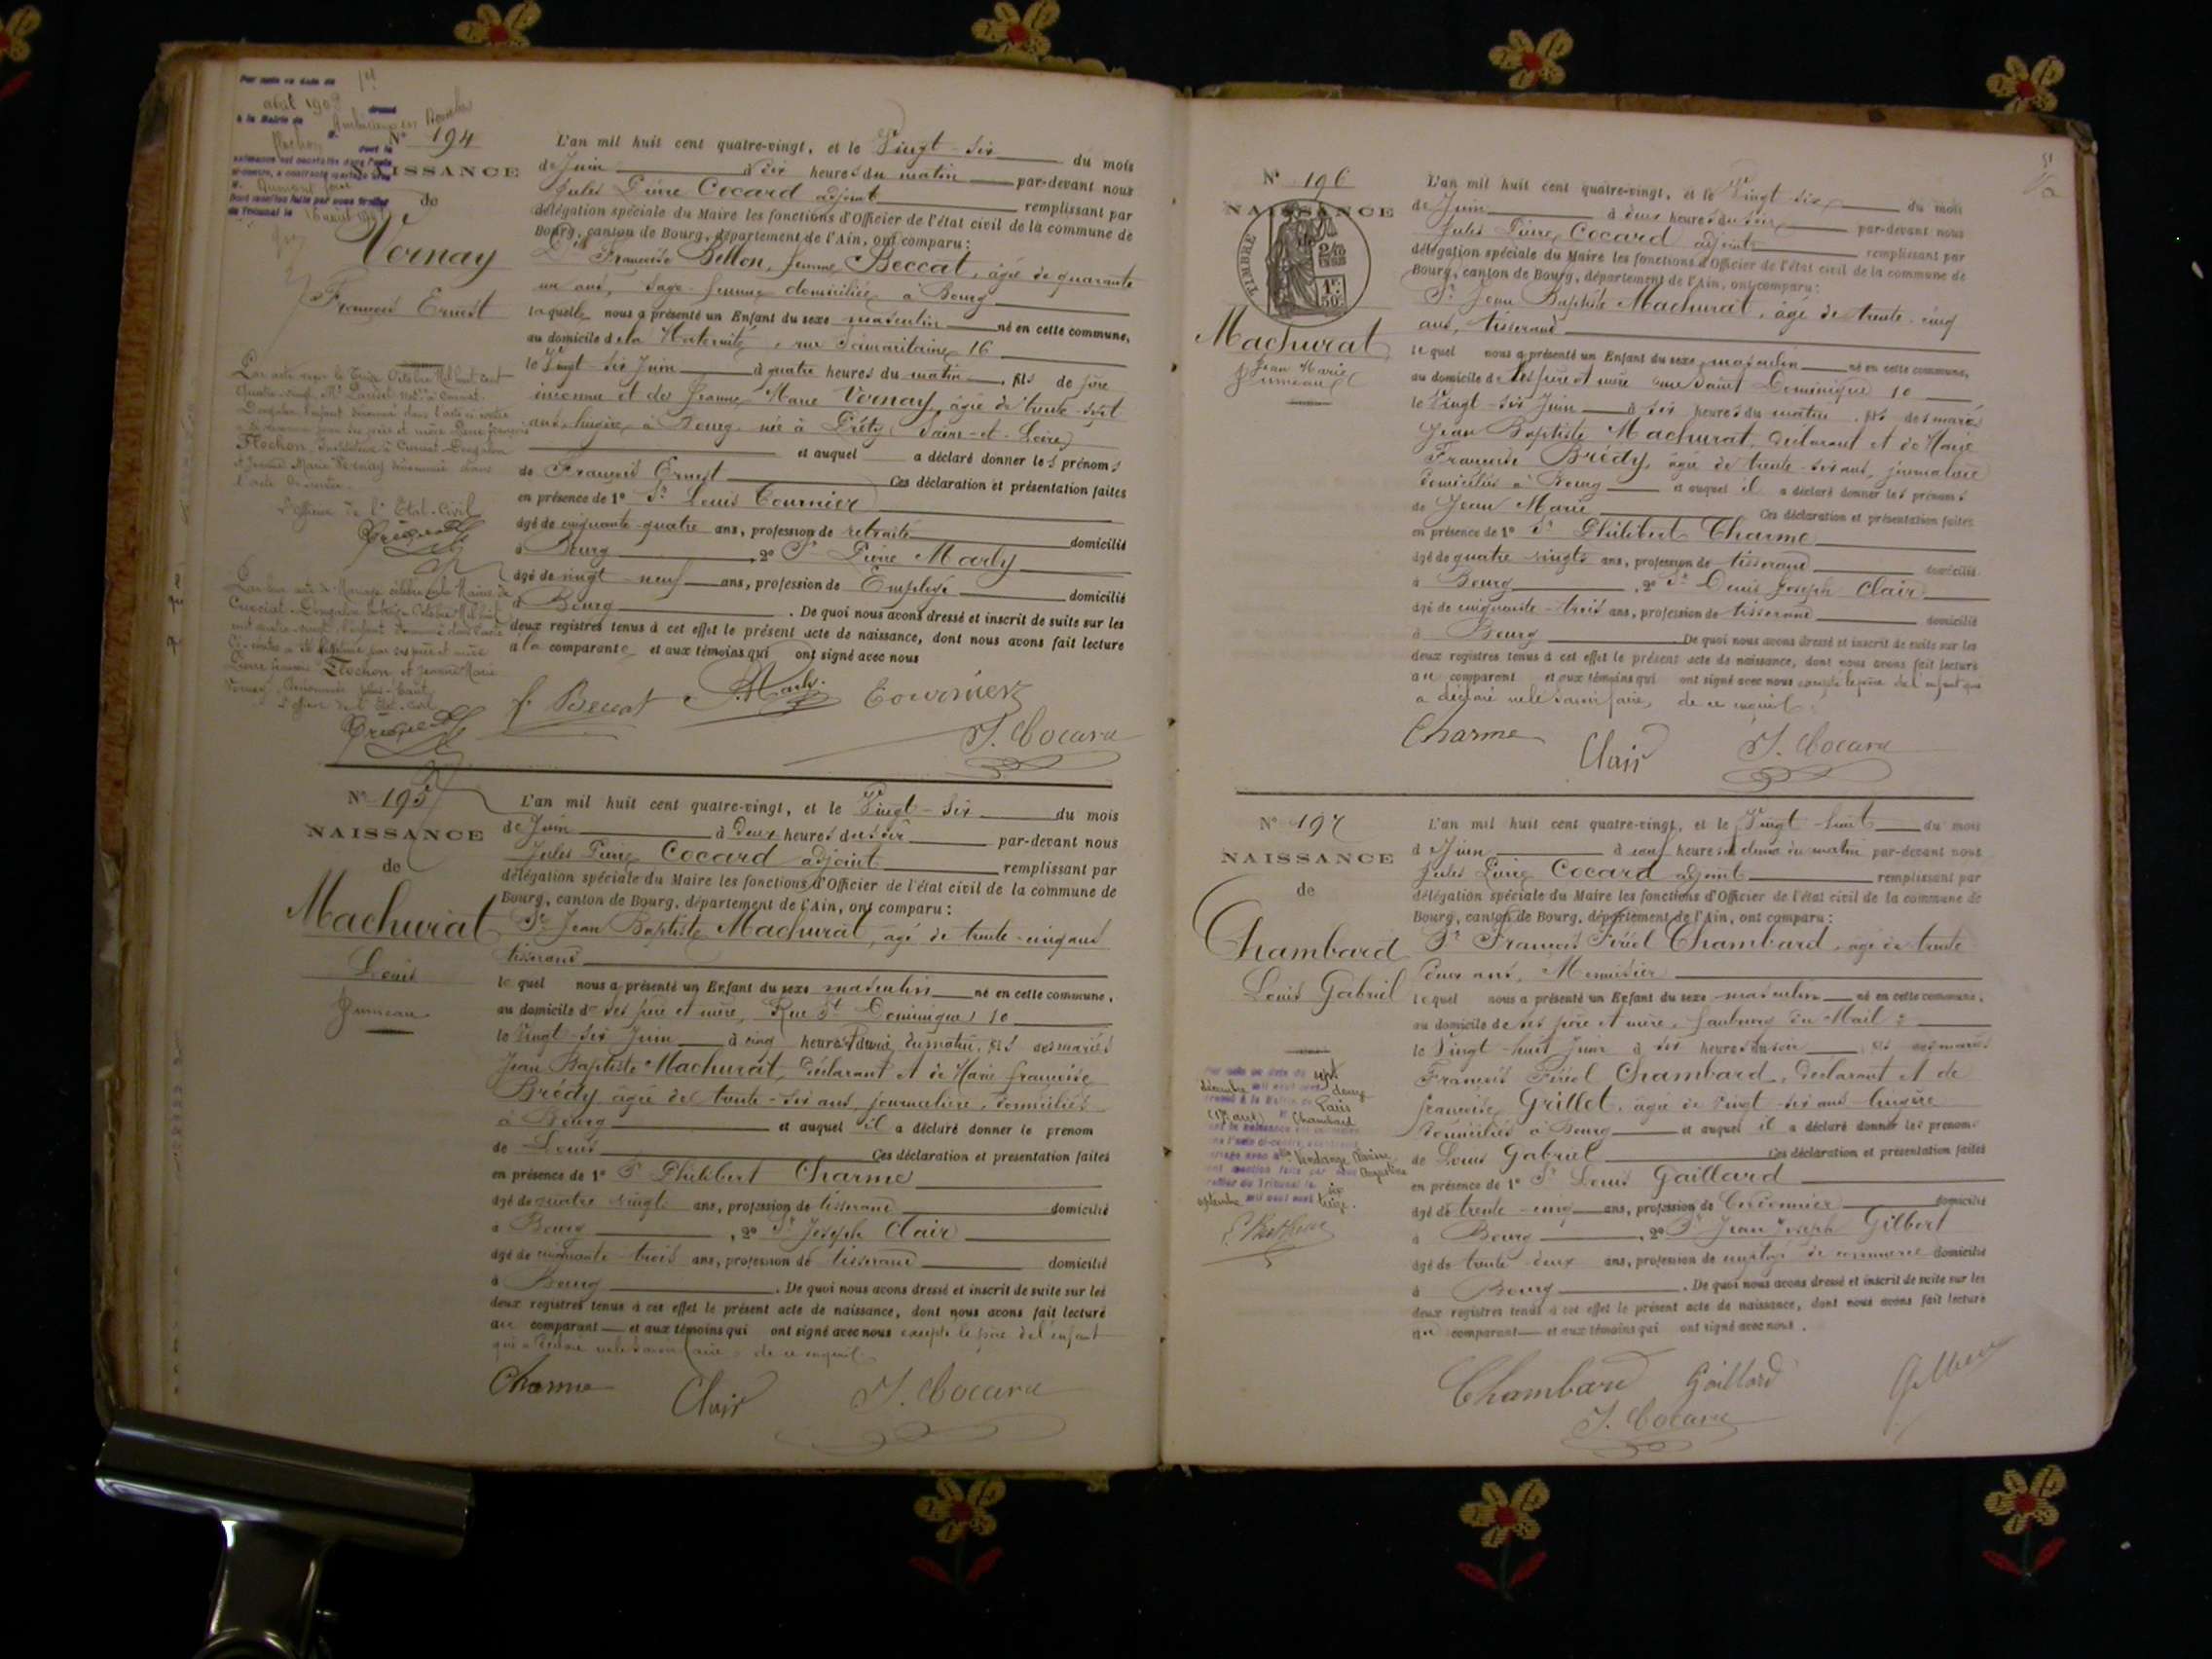 Par acte en date du 1er
avril 1902 dressé
à la Mairie de Ambérieux en Dombes
Flochon dont la
naissance est constatée dans l'acte
ci-contre, a contracté mariage avec
Dont mention faite par nous Greffier
du Tribunal le 16 avril
N° 194
NAISSANCE
de
Vernay
François Ernest
L'an mil huit cent quatre-vingt, et le Vingt-six du mois
de Juin à six heures du matin par-devant nous
Jules Pierre Cocard adjoint remplissant par
délégation spéciale du Maire les fonctions d'Officier de l'état civil de la commune de
Bourg, canton de Bourg, département de l'Ain, ont comparu :
De Françoise Billon, femme Beccat, âgée de quarante
un ans, sage-femme domiciliée à Bourg
laquelle nous a présenté un Enfant du sexe masculin né en cette commune,
au domicile de la Maternité, rue Samaritaine 16
le Vingt-six Juin à quatre heures du matin, fils de père
inconnu et de Jeanne Marie Vernay, âgée de trente-sept
ans, lingère à Bourg née à Prety (Saône-et-Loire)
et auquel a déclaré donner les prénoms
de François Ernest Ces déclaration et présentation faites
en présence de 1° Sr Louis Tournier
âgé de cinquante-quatre ans, profession de retraité domicilié
à Bourg, 2° Sr Pierre Marly
âgé de vingt-neuf ans, profession de Employé domicilié
à Bourg. De quoi nous avons dressé et inscrit de suite sur les
deux registres tenus à cet effet le présent acte de naissance, dont nous avons fait lecture
à la comparante et aux témoins qui ont signé avec nous
Par acte reçu le Treize Octobre Mil huit cent
Quatre-vingt,
l'enfant dénommé dans l'acte ci-contre
a été reconnu par ses père et mère Pierre François
Flochon, Instituteur à Cruzial-Dongalon
et Jeanne Marie Vernay dénommée dans
l'acte ci-contre.
L'officier de l'Etat-Civil
Par leur acte de Mariage célébré à la Mairie de
Cruzial-Dongalon le treize Octobre Mil huit
cent quatre-vingt, l'enfant dénommé dans l'acte
Ci-contre a été légitimé par ses père et mère
Pierre François Flochon et Jeanne Marie
Vernay dénommés plus-haut
L'officier de l'Etat-civil
f. Beccat P. Marly Tournier
J. Cocard
N° 195
NAISSANCE
de
Machurat
Louis
Jumeau
L'an mil huit cent quatre-vingt, et le Vingt-six du mois
de Juin à deux heures du soir par-devant nous
Jules Pierre Cocard adjoint remplissant par
délégation spéciale du Maire les fonctions d'Officier de l'état civil de la commune de
Bourg, canton de Bourg, département de l'Ain, ont comparu :
Sr Jean Baptiste Machurat, âgé de trente-cinq ans
tisserand
lequel nous a présenté un Enfant du sexe masculin né en cette commune,
au domicile de ses père et mère, Rue St Dominique 10
le Vingt-six Juin à cinq heures & demie du matin, fils des mariés
Jean Baptiste Machurat, déclarant et de Marie Françoise
Brédy âgée de trente-six ans, journalière, domiciliés
à Bourg et auquel il a déclaré donner le prénom
de Louis Ces déclaration et présentation faites
en présence de 1° Sr Philibert Charme
âgé de quatre vingts ans, profession de tisserand domicilié
à Bourg, 2° Sr Joseph Clair
âgé de cinquante-trois ans, profession de tisserand domicilié
à Bourg. De quoi nous avons dressé et inscrit de suite sur les
deux registres tenus à cet effet le présent acte de naissance, dont nous avons fait lecture
au comparant et aux témoins qui ont signé avec nous excepté le père de l'enfant
qui a déclaré ne le savoir faire, de ce enquis.
Charme Clair J. Cocard
N° 196
NAISSANCE
de
TIMBRE
Machurat
Jean Marie
Jumeau
L'an mil huit cent quatre-vingt, et le Vingt-six du mois
de Juin à deux heures du soir par-devant nous
Jules Pierre Cocard adjoint remplissant par
délégation spéciale du Maire les fonctions d'Officier de l'état civil de la commune de
Bourg, canton de Bourg, département de l'Ain, ont comparu :
Sr Jean Baptiste Machurat, âgé de trente-cinq
ans, tisserand
lequel nous a présenté un Enfant du sexe masculin né en cette commune,
au domicile de ses père et mère rue Saint Dominique 10
le Vingt-six Juin à six heures du matin, fils des mariés
Jean Baptiste Machurat, déclarant et de Marie
Françoise Brédy, âgée de trente-six ans, journalière
domiciliés à Bourg et auquel il a déclaré donner les prénoms
de Jean Marie Ces déclaration et présentation faites
en présence de 1° Sr Philibert Charme
âgé de quatre vingts ans, profession de tisserand domicilié
à Bourg, 2° Sr Denis Joseph Clair
âgé de cinquante-trois ans, profession de tisserand domicilié
à Bourg De quoi nous avons dressé et inscrit de suite sur les
deux registres tenus à cet effet le présent acte de naissance, dont nous avons fait lecture
au comparant et aux témoins qui ont signé avec nous excepté le père de l'enfant qui
a déclaré ne le savoir faire, de ce enquis.
Charme Clair J. Cocard
N° 197
NAISSANCE
de
Chambard
Louis Gabriel
L'an mil huit cent quatre-vingt, et le Vingt-huit du mois
d Juin à neuf heures et demie du matin par-devant nous
Jules Pierre Cocard adjoint remplissant par
délégation spéciale du Maire les fonctions d'Officier de l'état civil de la commune de
Bourg, canton de Bourg, département de l'Ain, ont comparu :
Sr François Fréol Chambard, âgé de trente
deux ans, Menuisier
lequel nous a présenté un Enfant du sexe masculin né en cette commune,
au domicile de ses père et mère, faubourg du Mail
le Vingt-huit Juin à six heures du soir, fils des mariés
François Fréol Chambard, déclarant et de
Françoise Grillet, âgée de vingt-six ans lingère
domiciliés à Bourg et auquel il a déclaré donner les prénoms
de Louis Gabriel Ces déclaration et présentation faites
en présence de 1° Sr Louis Gaillard
âgé de trente-cinq ans, profession de Cordonnier domicilié
à Bourg, 2° Sr Jean Joseph Gilbert
âgé de trente-deux ans, profession de employé de commerce domicilié
à Bourg. De quoi nous avons dressé et inscrit de suite sur les
deux registres tenus à cet effet le présent acte de naissance, dont nous avons fait lecture
au comparant et aux témoins qui ont signé avec nous.
Par acte en date du sept
décembre mil neuf cent douze
dressé à la Mairie de Paris
Chambard
Vendange
Augustine
Greffier du Tribunal le six
septembre mil neuf cent treize.
Chambard Gaillard Gilbert
J. Cocard